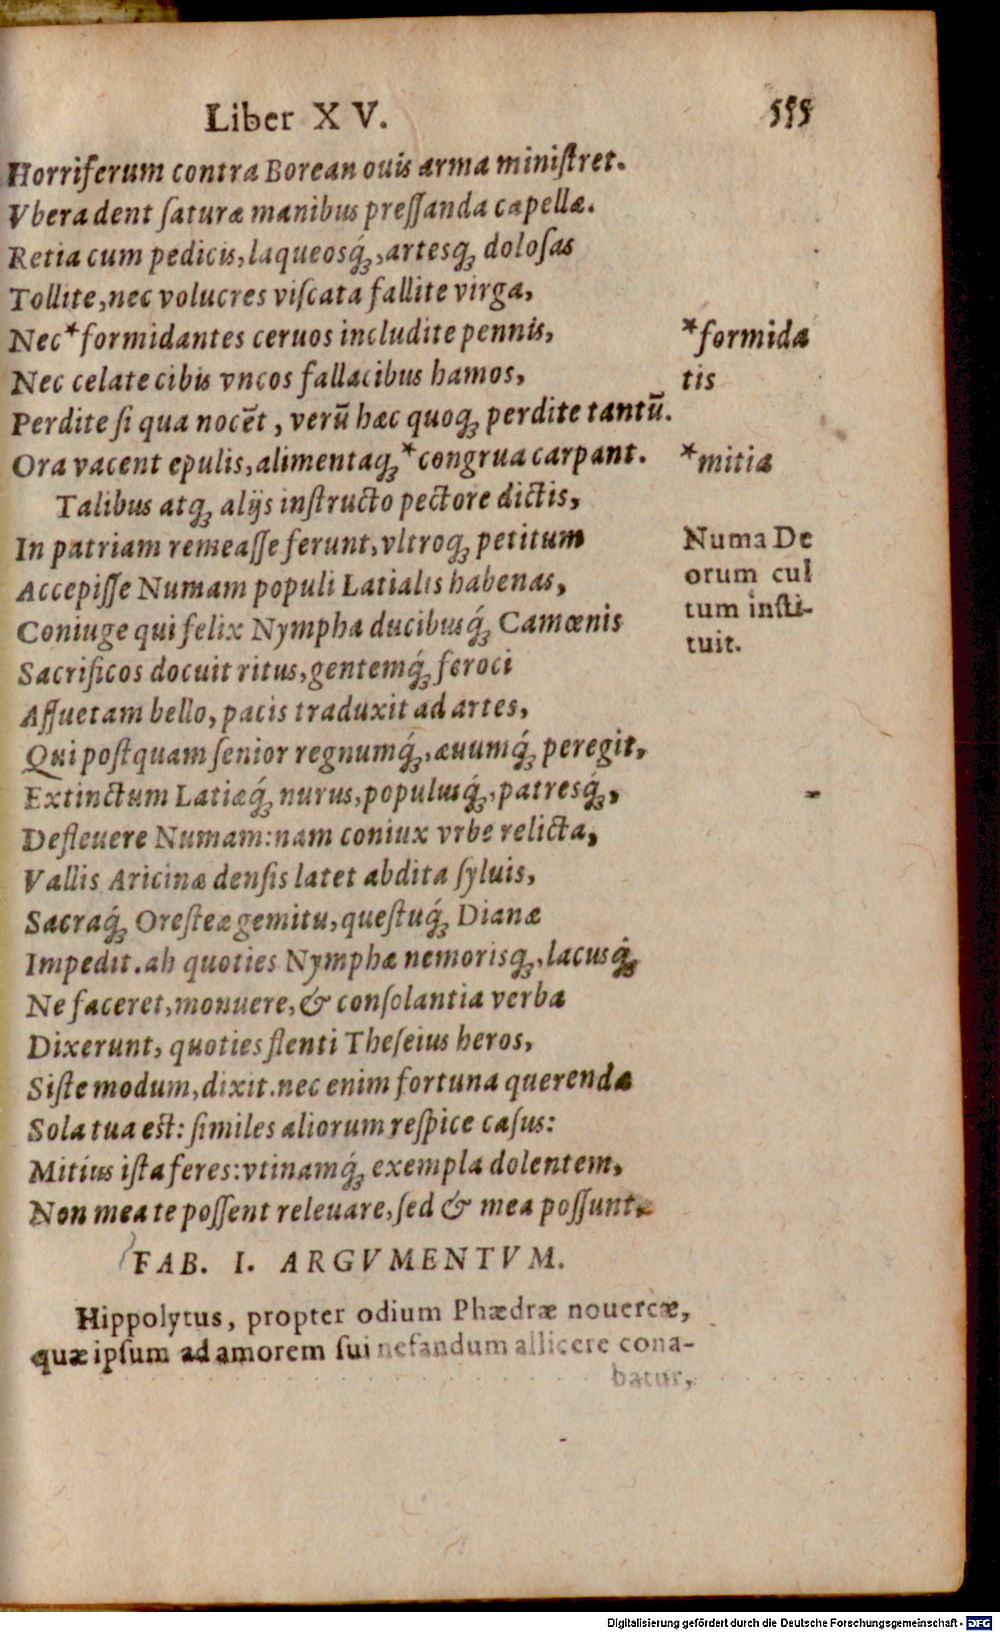 Liber X V. 555
Horriferum contra Borean ouis arma miniſtret.
Vbera dent ſaturæ manibus preſſanda capellæ.
Retia cum pedicis, laqueosq́ꝫ, artesqꝫ doloſas
Tollite, nec volucres viſcata fallite virga,
Nec *formidantes ceruos includite pennis,
*formida
tis
Nec celate cibis vncos fallacibus hamos,
Perdite ſi qua nocēt, verū hæc quoqꝫ perdite tantū.
Ora vacent epulis, alimentaqꝫ *congrua carpant.
*mitia
Talibus atqꝫ alijs inſtructo pectore dictis,
In patriam remeaſſe ferunt, vltroqꝫ petitum
Accepiſſe Numam populi Latialis habenas,
Numa De
orum cul
tum inſti-
tuit.
Coniuge qui felix Nympha ducibusq́ꝫ Camœnis
Sacrificos docuit ritus, gentemq́ꝫ feroci
Aſſuetam bello, pacis traduxit ad artes,
Qui poſtquam ſenior regnumq́ꝫ, æuumq́ꝫ peregit,
Extinctum Latiæq́ꝫ nurus, populusq́ꝫ, patresq́ꝫ,
Defleuere Numam: nam coniux vrbe relicta,
Vallis Aricinæ denſis latet abdita ſyluis,
Sacraq́ꝫ Oreſteæ gemitu, queſtuq́ꝫ Dianæ
Impedit. ah quoties Nymphæ nemorisqꝫ, lacusq́ꝫ
Ne faceret, monuere, & conſolantia verba
Dixerunt, quoties flenti Theſeius heros,
Siſte modum, dixit. nec enim fortuna querenda
Sola tua est: ſimiles aliorum reſpice caſus:
Mitius iſta feres: vtinamq́ꝫ exempla dolentem,
Non mea te poſſent releuare, ſed & mea poſſunt.
FAB. I. ARGVMENTVM.
Hippolytus, propter odium Phædræ nouercæ,
quæ ipſum ad amorem ſui nefandum allicere cona-
batur,
Digitalisierung gefördert durch die Deutsche Forschungsgemeinschaft - DFG